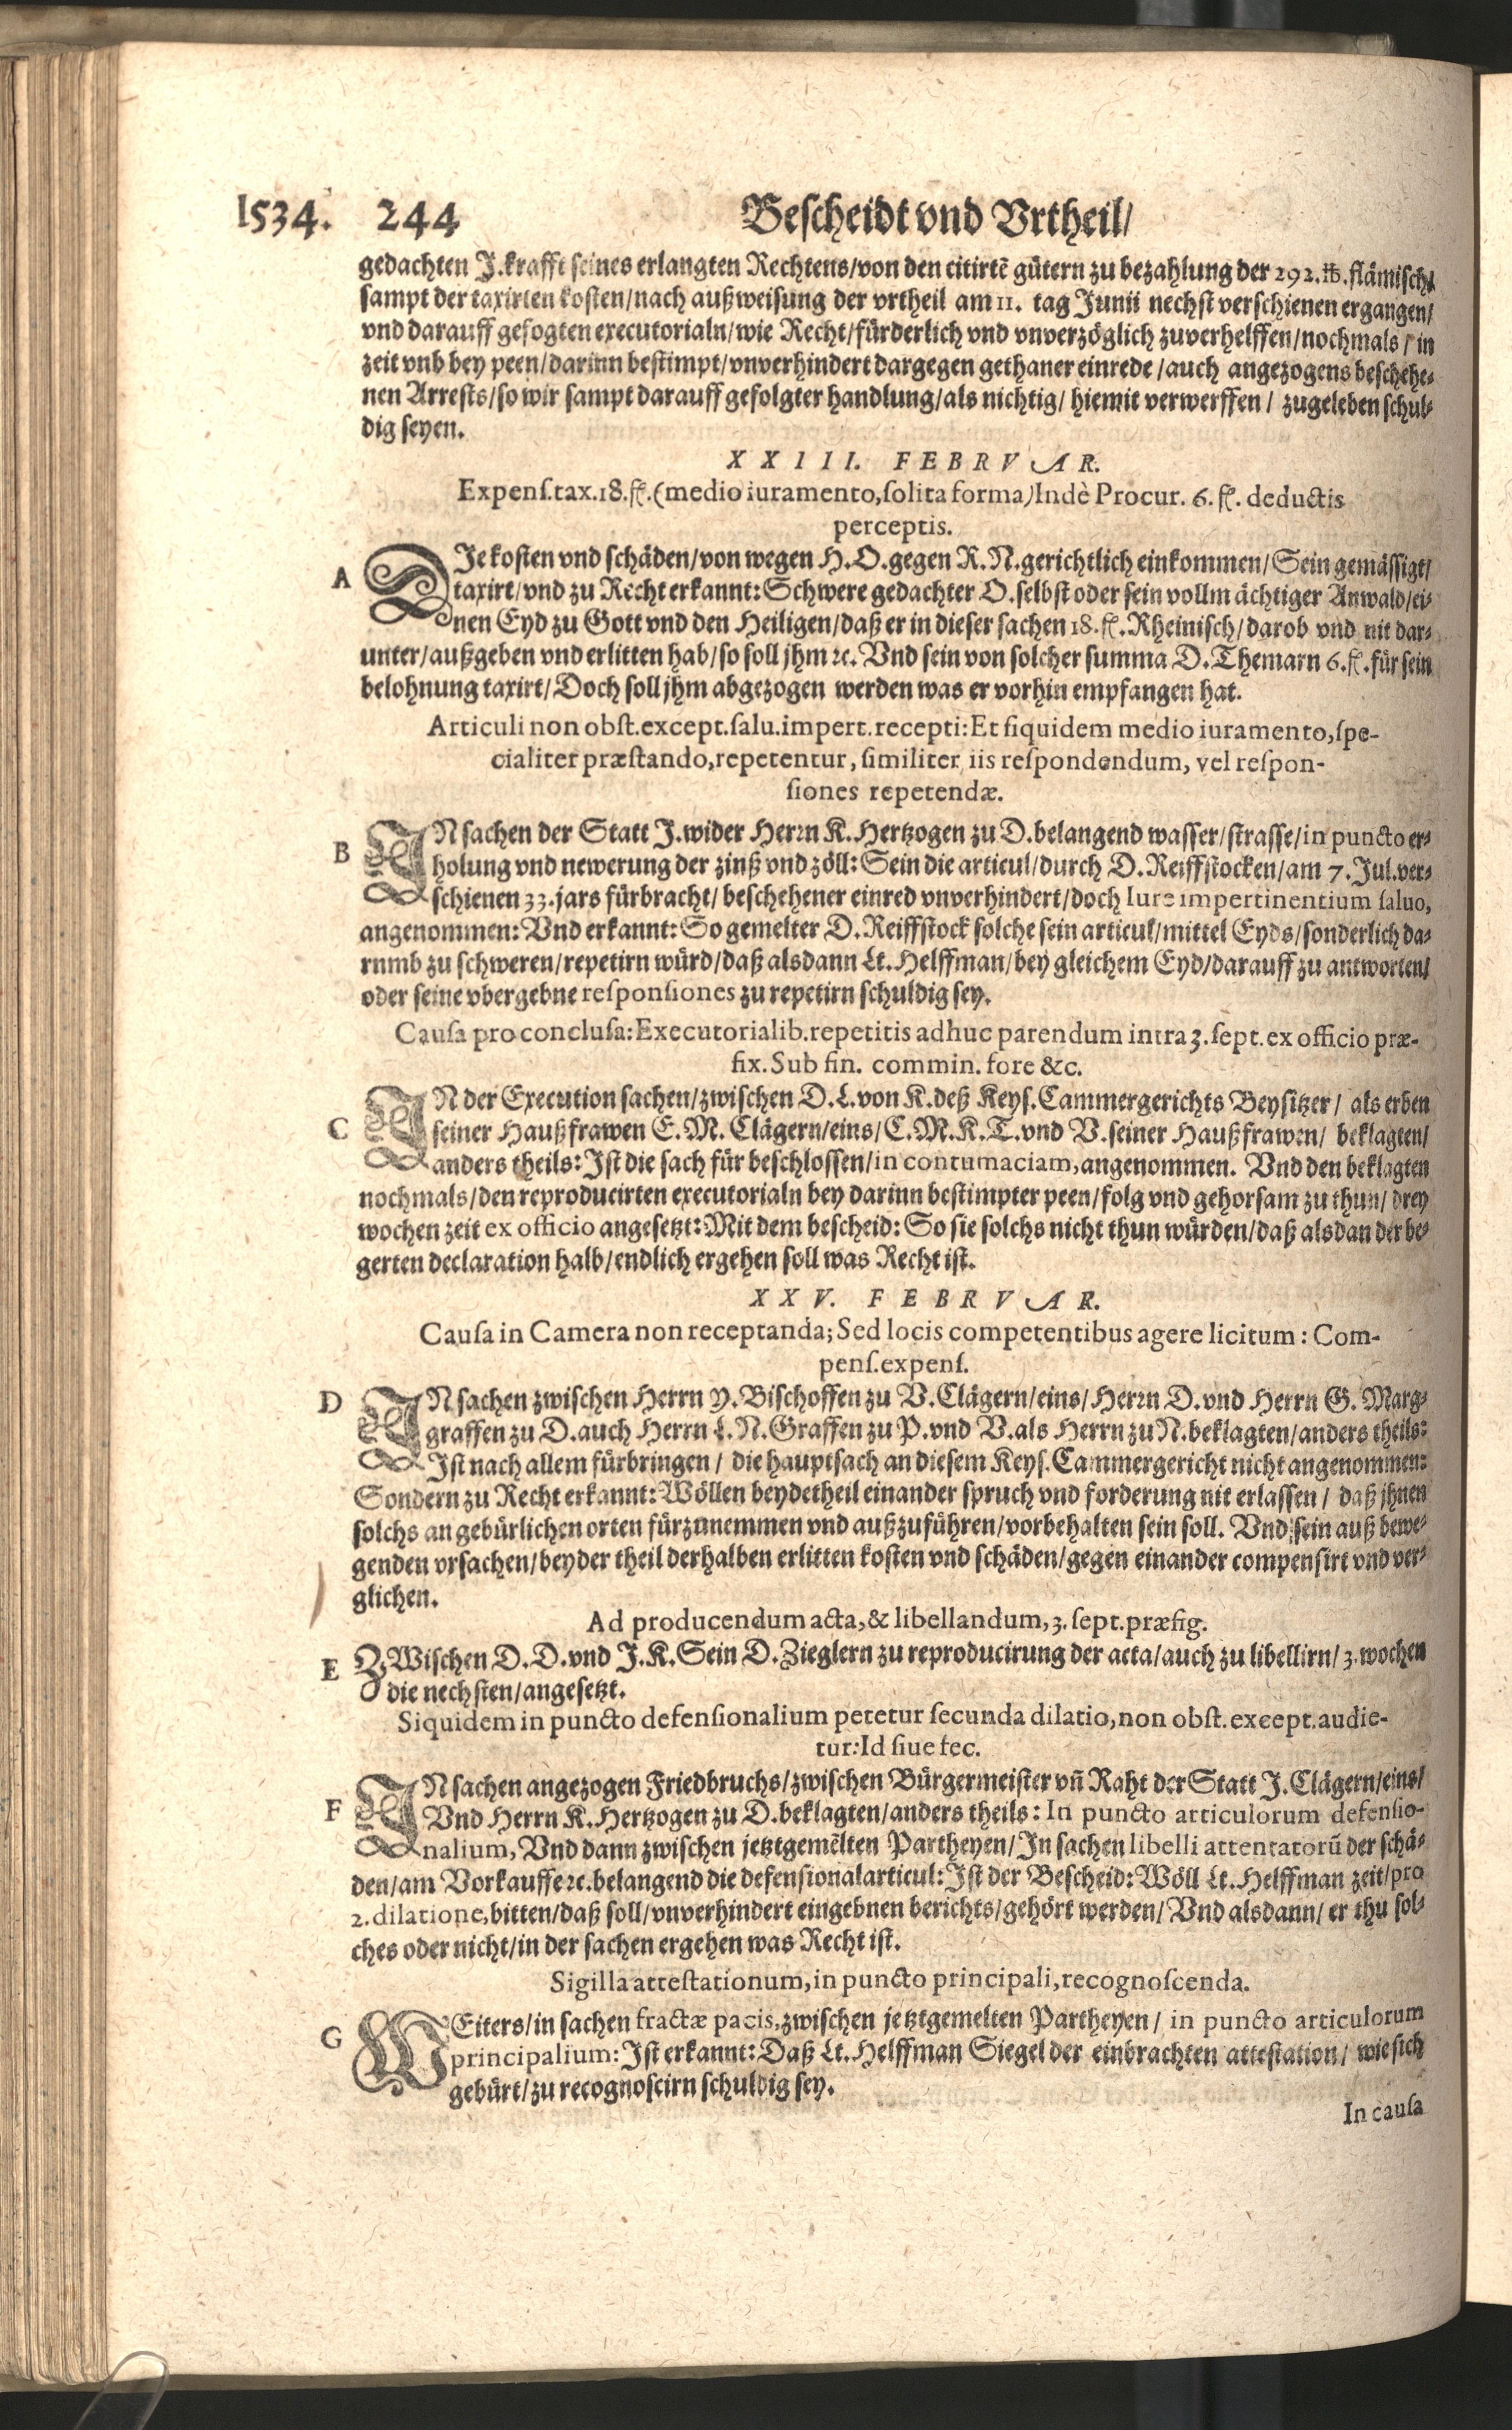 1534. 244 Bescheidt vnd Vrtheil/
gedachten J. krafft seines erlangten Rechtens/von den citirtē gütern zu bezahlung der 292. ℔. flämisch/
sampt der taxirten kosten/nach außweisung der vrtheil am 11. tag Junii nechst verschienen ergangen/
vnd darauff gefogten executorialn/wie Recht/fürderlich vnd vnverzöglich zuverhelffen/nochmals/in
zeit vnb bey peen/darinn bestimpt/vnverhindert dargegen gethaner einrede/auch angezogens beschehe-
nen Arrests/so wir sampt darauff gefolgter handlung/als nichtig/ hiemit verwerffen/ zugeleben schul-
dig seyen.
XXIII. FEBRVAR.
Expenſ.tax.18.fl.(medio iuramento,ſolita forma)Indè Procur. 6. fl. deductis
perceptis.
A DIe kosten vnd schäden/von wegen H.O.gegen R.N.gerichtlich einkommen/Sein gemässigt/
taxirt/vnd zu Recht erkannt: Schwere gedachter O.selbst oder sein vollmächtiger Anwald/ei-
nen Eyd zu Gott vnd den Heiligen/daß er in dieser sachen 18.fl.Rheinisch/darob vnd nit dar-
unter/außgeben vnd erlitten hab/so soll jhm ꝛc. Vnd sein von solcher summa D.Themarn 6.fl.für sein
belohnung taxirt/Doch soll jhm abgezogen werden was er vorhin empfangen hat.
Articuli non obſt.except.ſalu.impert.recepti:Et ſiquidem medio iuramento,ſpe-
cialiter præſtando,repetentur, ſimiliter iis reſpondendum, vel reſpon-
ſiones repetendæ.
B IN sachen der Statt J.wider Herrn K.Hertzogen zu D.belangend wasser/strasse/in puncto er-
holung vnd newerung der zinß vnd zöll: Sein die articul/durch D.Reiffstocken/am 7.Jul.ver-
schienen 33.jars fürbracht/ beschehener einred vnverhindert/doch Iure impertinentium ſaluo,
angenommen: Vnd erkannt: So gemelter D.Reiffstock solche sein articul/mittel Eyds/sonderlich da-
rnmb zu schweren/repetirn würd/daß alsdann Lt.Helffman/bey gleichem Eyd/darauff zu antworten/
oder seine vbergebne reſponſiones zu repetirn schuldig sey.
Cauſa pro concluſa: Executorialib.repetitis adhuc parendum intra 3.ſept.ex officio præ-
fix.Sub fin. commin. fore &c.
C IN der Execution sachen/zwischen D.L.von K.deß Keys.Cammergerichts Beysitzer/ als erben
seiner Haußfrawen E.M. Clägern/eins/C.M.K.T.vnd V.seiner Haußfrawen/ beklagten/
anders theils: Ist die sach für beschlossen/in contumaciam,angenommen. Vnd den beklagten
nochmals/den reproducirten executorialn bey darinn bestimpter peen/folg vnd gehorsam zu thun/ drey
wochen zeit ex officio angesetzt: Mit dem bescheid: So sie solchs nicht thun würden/daß alsdan der be-
gerten declaration halb/endlich ergehen soll was Recht ist.
XXV. FEBRVAR.
Cauſa in Camera non receptanda; Sed locis competentibus agere licitum: Com-
penſ.expenſ.
D IN sachen zwischen Herrn Y.Bischoffen zu V.Clägern/eins/Herrn D.vnd Herrn G. Marg-
graffen zu D.auch Herrn L.N.Graffen zu P.vnd V.als Herrn zu N.beklagten/anders theils:
Ist nach allem fürbringen/ die hauptsach an diesem Keys.Cammergericht nicht angenommen:
Sondern zu Recht erkannt: Wöllen beydetheil einander spruch vnd forderung nit erlassen/ daß jhnen
solchs an gebürlichen orten fürzunemmen vnd außzuführen/vorbehalten sein soll. Vnd sein auß bewe-
genden vrsachen/beyder theil derhalben erlitten kosten vnd schäden/gegen einander compensirt vnd ver-
glichen.
Ad producendum acta,& libellandum,3.ſept.præfig.
E ZWischen D.D.vnd J.K.Sein D.Zieglern zu reproducirung der acta/auch zu libellirn/3.wochen
die nechsten/angesetzt.
Siquidem in puncto defenſionalium petetur ſecunda dilatio,non obſt.except.audie-
tur: Id ſiue ſec.
F IN sachen angezogen Friedbruchs/zwischen Bürgermeister vñ Raht der Statt J.Clägern/eins/
Vnd Herrn K.Hertzogen zu D.beklagten/anders theils: In puncto articulorum defenſio-
nalium, Vnd dann zwischen jetztgemēlten Partheyen/In sachen libelli attentatorū der schä-
den/am Vorkauffe ꝛc.belangend die defensionalarticul: Ist der Bescheid: Wöll Lt.Helffman zeit/pro
2.dilatione,bitten/daß soll/vnverhindert eingebnen berichts/gehört werden/ Vnd alsdann/ er thu sol-
ches oder nicht/in der sachen ergehen was Recht ist.
Sigilla atteſtationum,in puncto principali,recognoſcenda.
G WEiters/in sachen fractæ pacis,zwischen jetztgemelten Partheyen/ in puncto articulorum
principalium: Ist erkannt: Daß Lt.Helffman Siegel der einbrachten attestation/ wie sich
gebürt/zu recognoscirn schuldig sey.
In cauſa